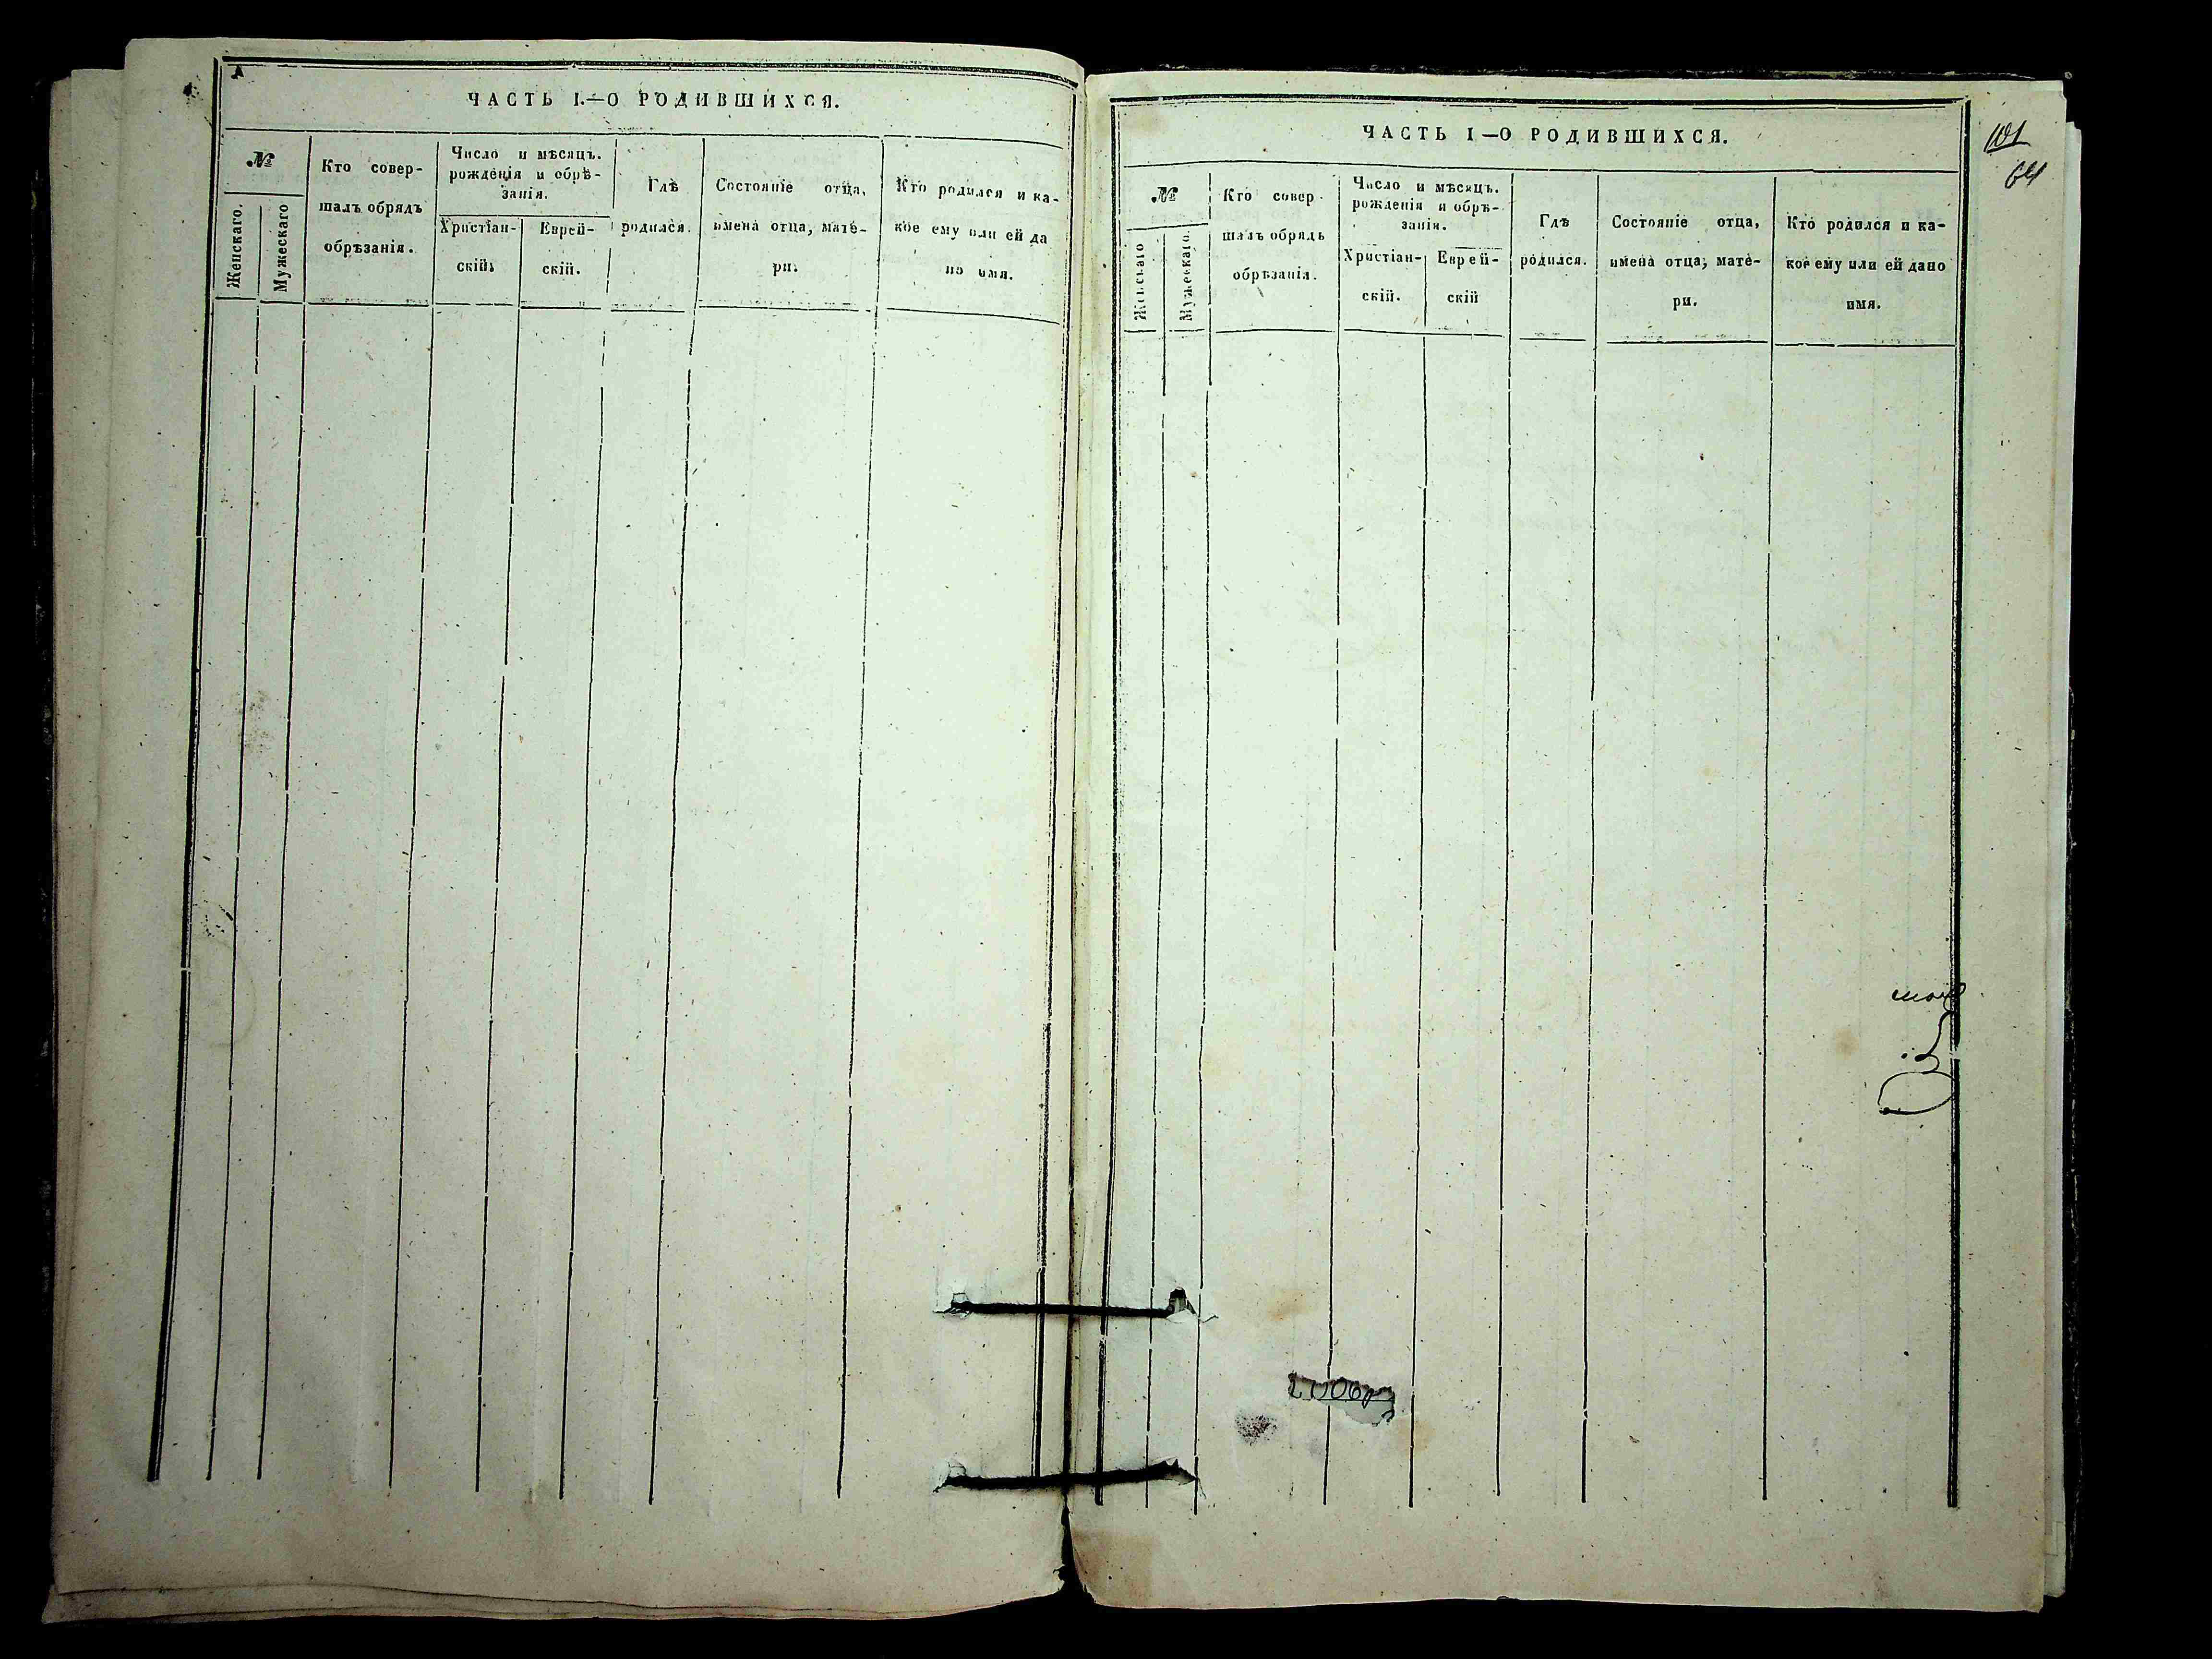 ЧАСТЬ I.—О РОДИВШИХСЯ.
№
Женскаго.
Мужескаго
Кто совер-
шалъ обрядъ
обрѣзанія.
Число и мѣсяцъ.
рожденія и обрѣ-
занія.
Христіан-
скій.
Еврей-
скій.
Гдѣ
родился.
Состояніе отца,
имена отца, мате-
ри.
Кто родился и ка-
кое ему или ей да
но имя.
ЧАСТЬ I—О РОДИВШИХСЯ.
101
64
№
Женскаго
Мужескаго.
Кто совер-
шалъ обрядъ
обрѣзанія.
Число и мѣсяцъ.
рожденія и обрѣ-
занія.
Христіан-
скій.
Еврей-
скій
Гдѣ
родился.
Состояніе отца,
имена отца, мате-
ри.
Кто родился и ка-
кое ему или ей дано
имя.